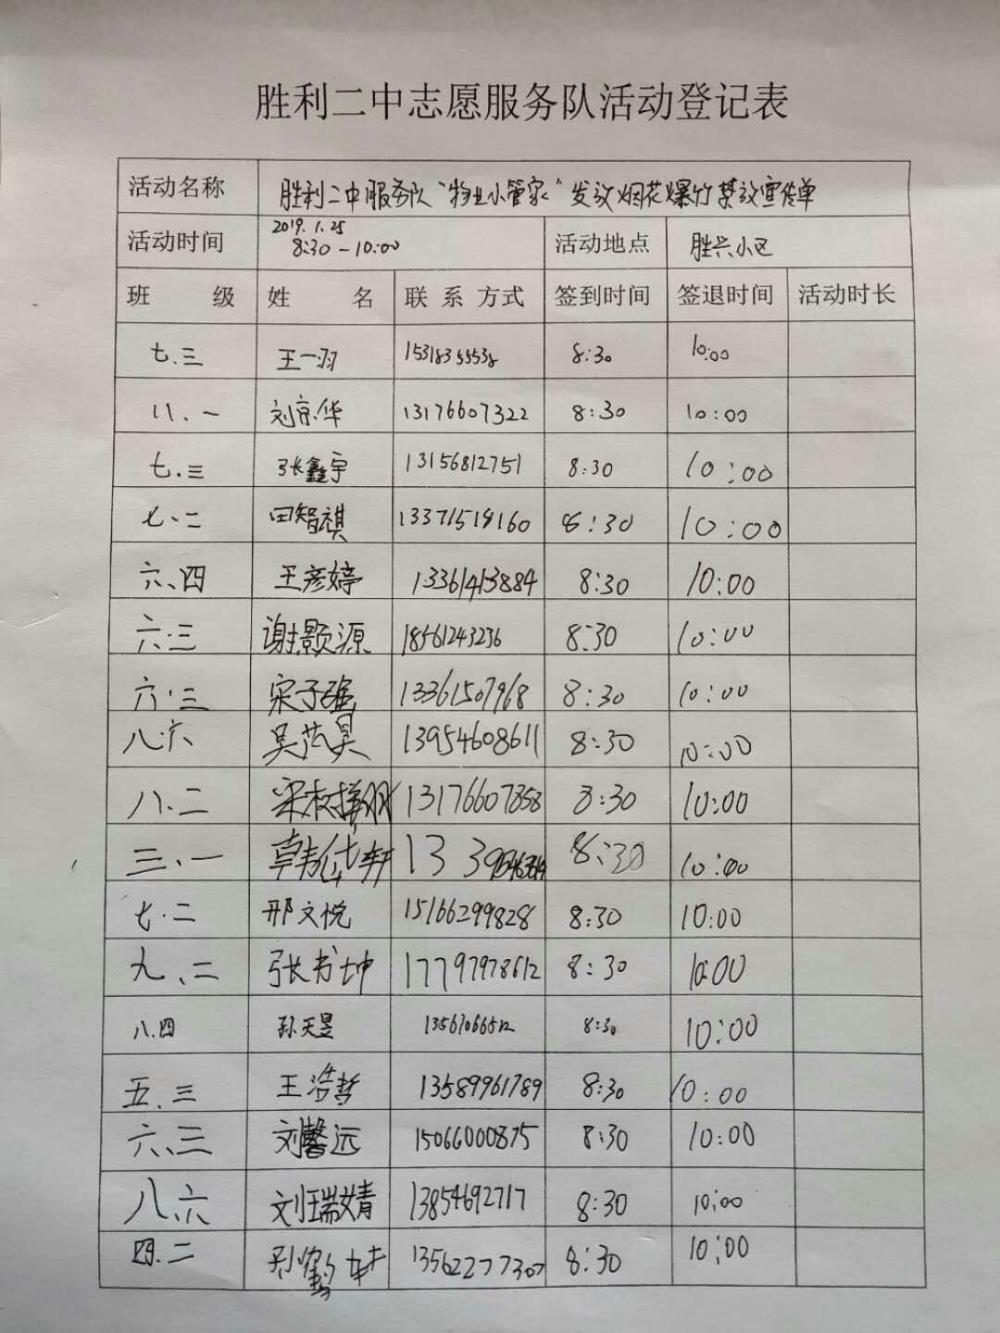 胜利二中志愿服务队活动登记表
活动名称 胜利二中服务队“物业小管家”发放烟花爆竹禁放宣传单
活动时间 2019.1.25 8:30-10:00 活动地点 胜兴小区
班 级 姓 名 联系方式 签到时间 签退时间 活动时长
七.三 王一羽 8:30 10:00
八.一 刘京华 13176607322 8:30 10:00
七.三 张鑫宇 13156812751 8:30 10:00
七.二 田智祺 13371519160 8:30 10:00
六.四 王彦婷 13361413884 8:30 10:00
六.三 谢颢源 18561243236 8:30 10:00
六.三 宋子强 13361507968 8:30 10:00
八.六 吴 昊 13954608611 8:30 10:00
八.二 13176607858 8:30 10:00
三.一 8:30 10:00
七.二 邢文悦 15166299828 8:30 10:00
九.二 张书坤 17797978612 8:30 10:00
八.四 孙天昱 8:30 10:00
五.三 王浩哲 13589961789 8:30 10:00
六.三 刘馨远 15066000875 8:30 10:00
八.六 刘瑞婧 13854692717 8:30 10:00
四.二 孙鹤 13562277307 8:30 10:00